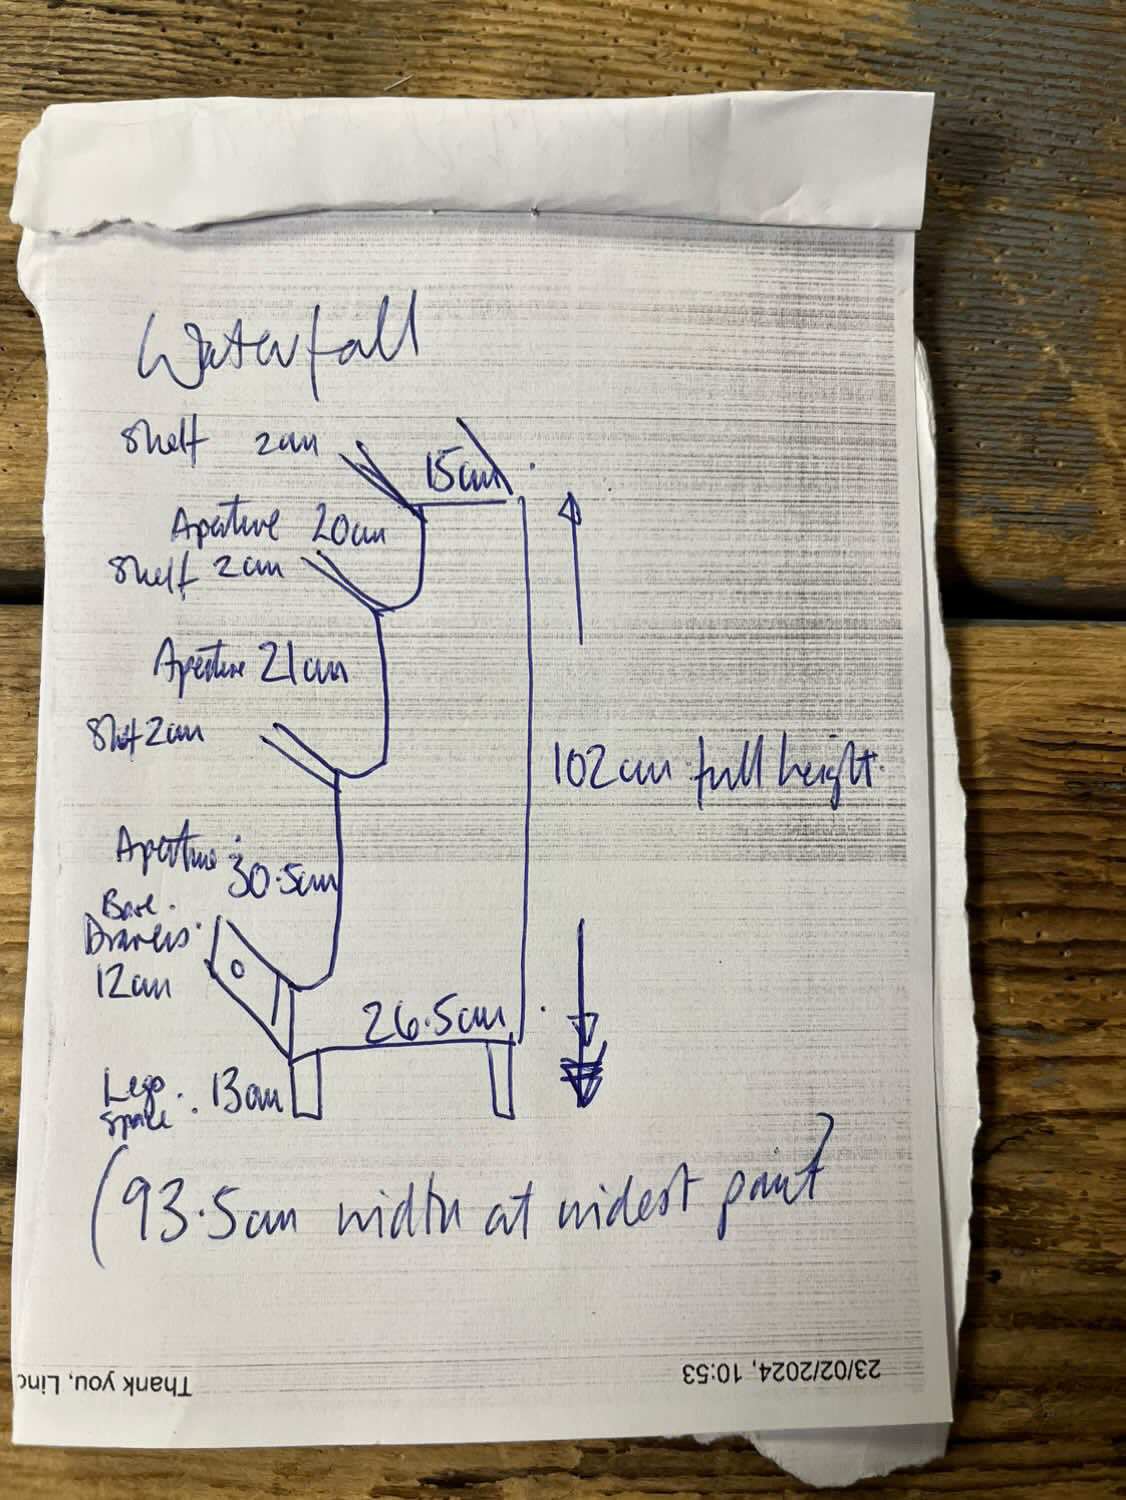 Waterfall
Shelf 2cm
15cm
Aperture 20cm
Shelf 2cm
Aperture 21cm
Shelf 2cm
102cm full height.
Aperture 30.5cm
Base
Drawers
12cm
26.5cm
Legs 13cm
space
(93.5cm width at widest point)
23/02/2024, 10:53
Thank you, Linc